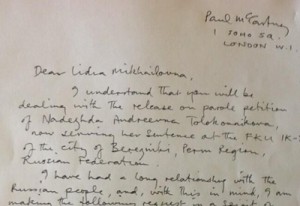 Paul McCartney
1 SOHO SQ.
LONDON W.1.
Dear Lidia Mikhailovna,
I understand that you will be
dealing with the release on parole petition
of Nadezhda Andreevna Tolokonnikova,
now serving her sentence at the FKU IK-
of the city of Berezniki, Perm Region,
Russian Federation.
I have had a long relationship with the
Russian people, and, with this in mind, I am
making the following request in a